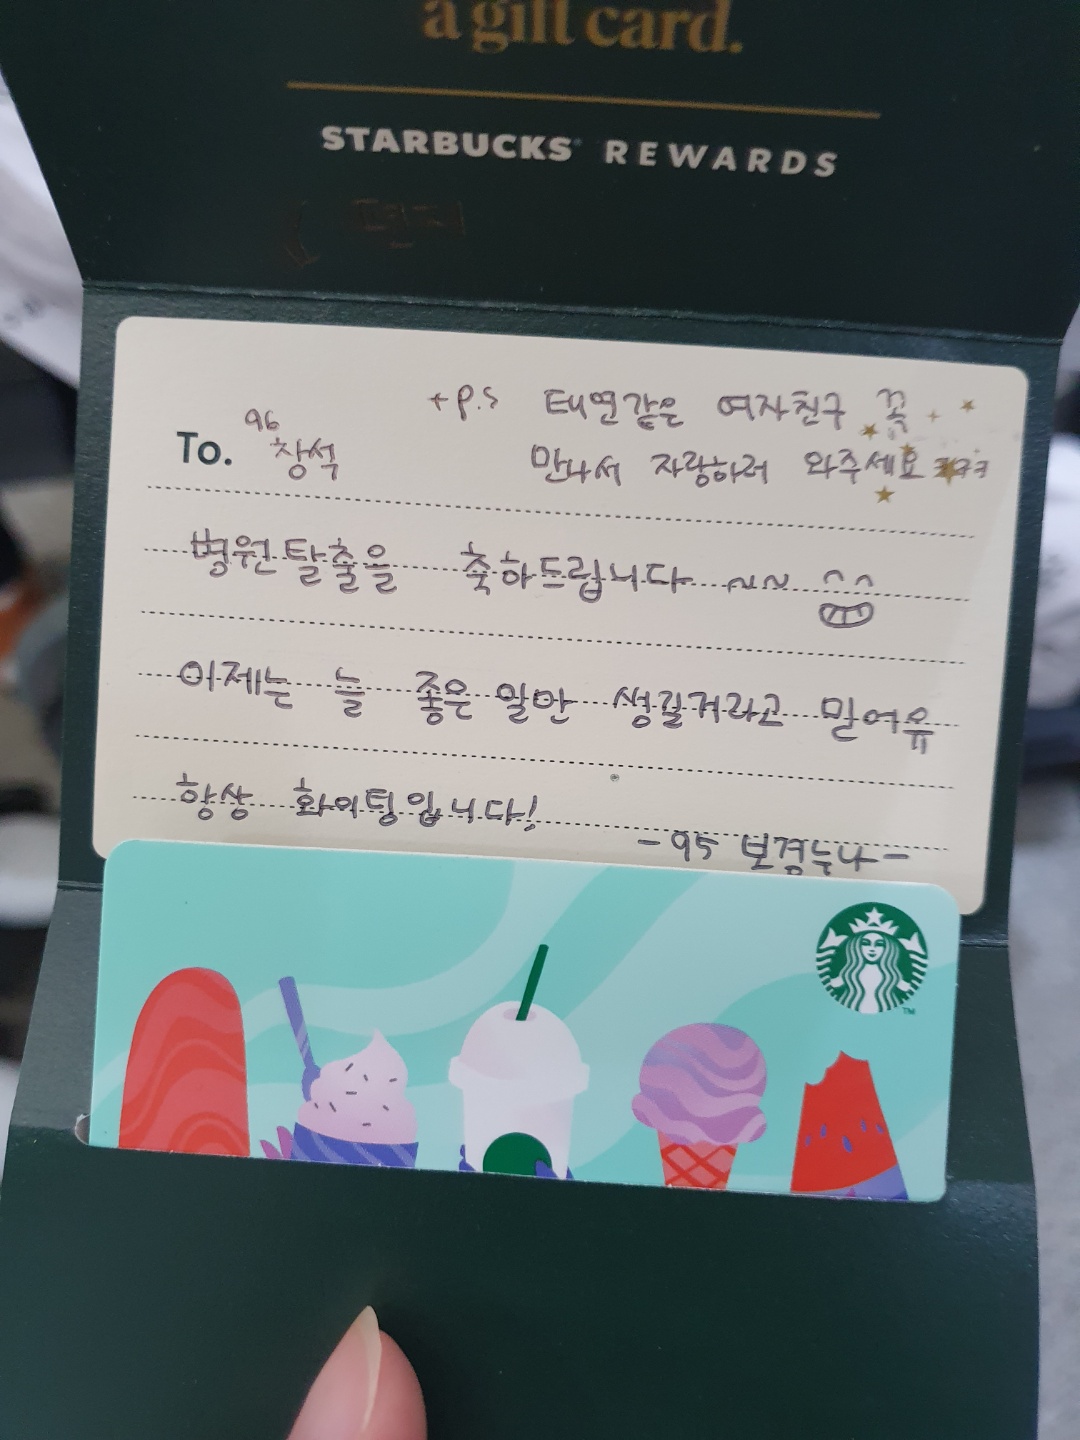 a gift card.
STARBUCKS® REWARDS
To. 96 창석
+ P.S 태연같은 여자친구 꼭
만나서 자랑하러 와주세요 ㅋㅋㅋ
병원탈출을 축하드립니다 ~~
이제는 늘 좋은 일만 생길거라고 믿어유
항상 화이팅입니다!
- 95 보경누나 -
TM